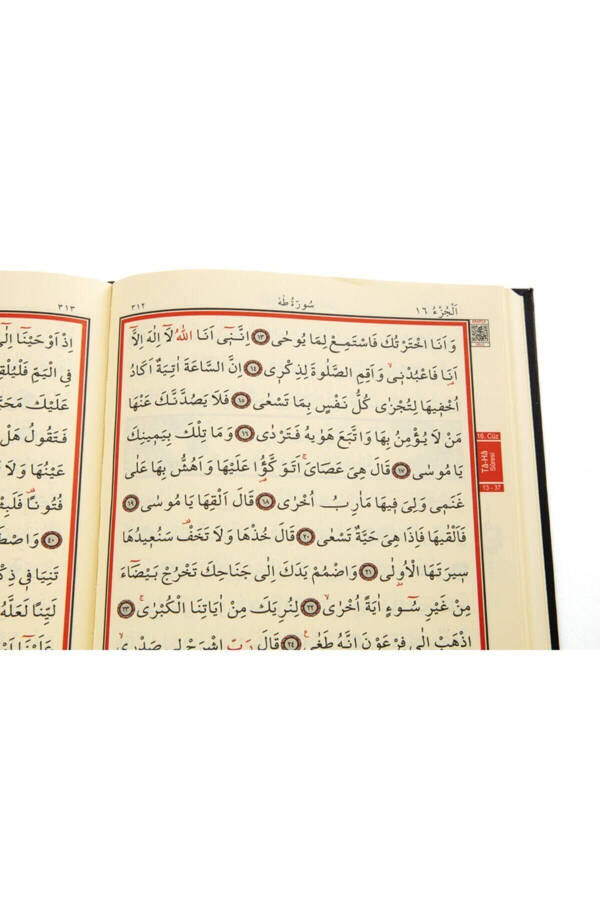 اَلْجُزْءُ ١٦ سُورَةُ طٰهٰ ٣١٢
وَاَنَا اخْتَرْتُكَ فَاسْتَمِعْ لِمَا يُوحٰى ﴿١٣﴾ اِنَّـنٖٓي اَنَا اللّٰهُ لَٓا اِلٰهَ اِلَّٓا
اَنَا۬ فَاعْبُدْنٖي وَاَقِمِ الصَّلٰوةَ لِذِكْرٖي ﴿١٤﴾ اِنَّ السَّاعَةَ اٰتِيَةٌ اَكَادُ
اُخْفٖيهَا لِتُجْزٰى كُلُّ نَفْسٍ بِمَا تَسْعٰى ﴿١٥﴾ فَلَا يَصُدَّنَّكَ عَنْهَا
مَنْ لَا يُؤْمِنُ بِهَا وَاتَّبَعَ هَوٰيهُ فَتَرْدٰى ﴿١٦﴾ وَمَا تِلْكَ بِيَمٖينِكَ
يَا مُوسٰى ﴿١٧﴾ قَالَ هِيَ عَصَايَۚ اَتَوَكَّؤُ۬ا عَلَيْهَا وَاَهُشُّ بِهَا عَلٰى
غَنَمٖي وَلِيَ فٖيهَا مَاٰرِبُ اُخْرٰى ﴿١٨﴾ قَالَ اَلْقِهَا يَا مُوسٰى ﴿١٩﴾
فَاَلْقٰيهَا فَاِذَا هِيَ حَيَّةٌ تَسْعٰى ﴿٢٠﴾ قَالَ خُذْهَا وَلَا تَخَفْ۠ سَنُعٖيدُهَا
سٖيرَتَهَا الْاُو۫لٰى ﴿٢١﴾ وَاضْمُمْ يَدَكَ اِلٰى جَنَاحِكَ تَخْرُجْ بَيْضَٓاءَ
مِنْ غَيْرِ سُٓوءٍ اٰيَةً اُخْرٰىۙ ﴿٢٢﴾ لِنُرِيَكَ مِنْ اٰيَاتِنَا الْكُبْرٰىۚ ﴿٢٣﴾
اِذْهَبْ اِلٰى فِرْعَوْنَ اِنَّهُ طَغٰى ﴿٢٤﴾ قَالَ رَبِّ اشْرَحْ لٖي صَدْرٖيۙ
16. Cüz
Tâ-Hâ
Sûresi
13 - 37
٣١٣
اِذْ اَوْحَيْنَٓا اِلٰٓى
فِي الْيَمِّ فَلْيُلْقِهِ
عَلَيْكَ مَحَبَّةً
فَتَقُولُ هَلْ
عَيْنُهَا وَلَا
فُتُونًا فَلَبِثْتَ
﴿٤٠﴾ وَاصْطَنَعْتُكَ
تَنِيَا فٖي ذِكْرٖي
لَيِّنًا لَعَلَّهُ
عَلَيْنَٓا